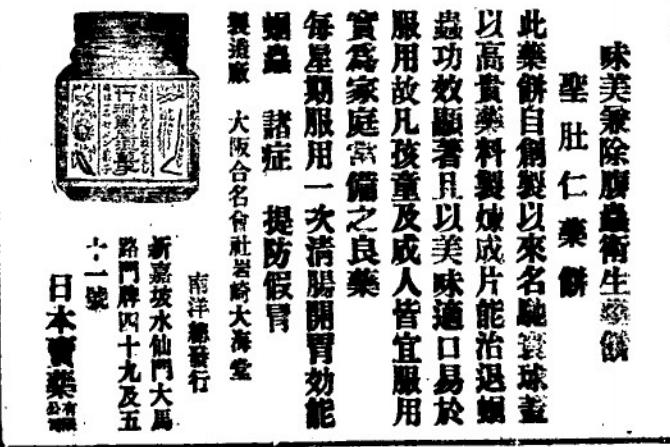 味美兼除腹蟲衛生藥餅
聖肚仁藥餅
此藥餅自創製以來名馳寰球蓋
以高貴藥料製煉成片能治退蛔
蟲功效顯著且以美味適口易於
服用故凡孩童及成人皆宜服用
實為家庭常備之良藥
每星期服用一次清腸開胃効能
蛔蟲 諸症 提防假冒
製造廠 大阪合名會社岩崎大海堂
南洋總發行
新嘉坡水仙門大馬
路門牌四十九及五
十一號
日本賣藥有限公司